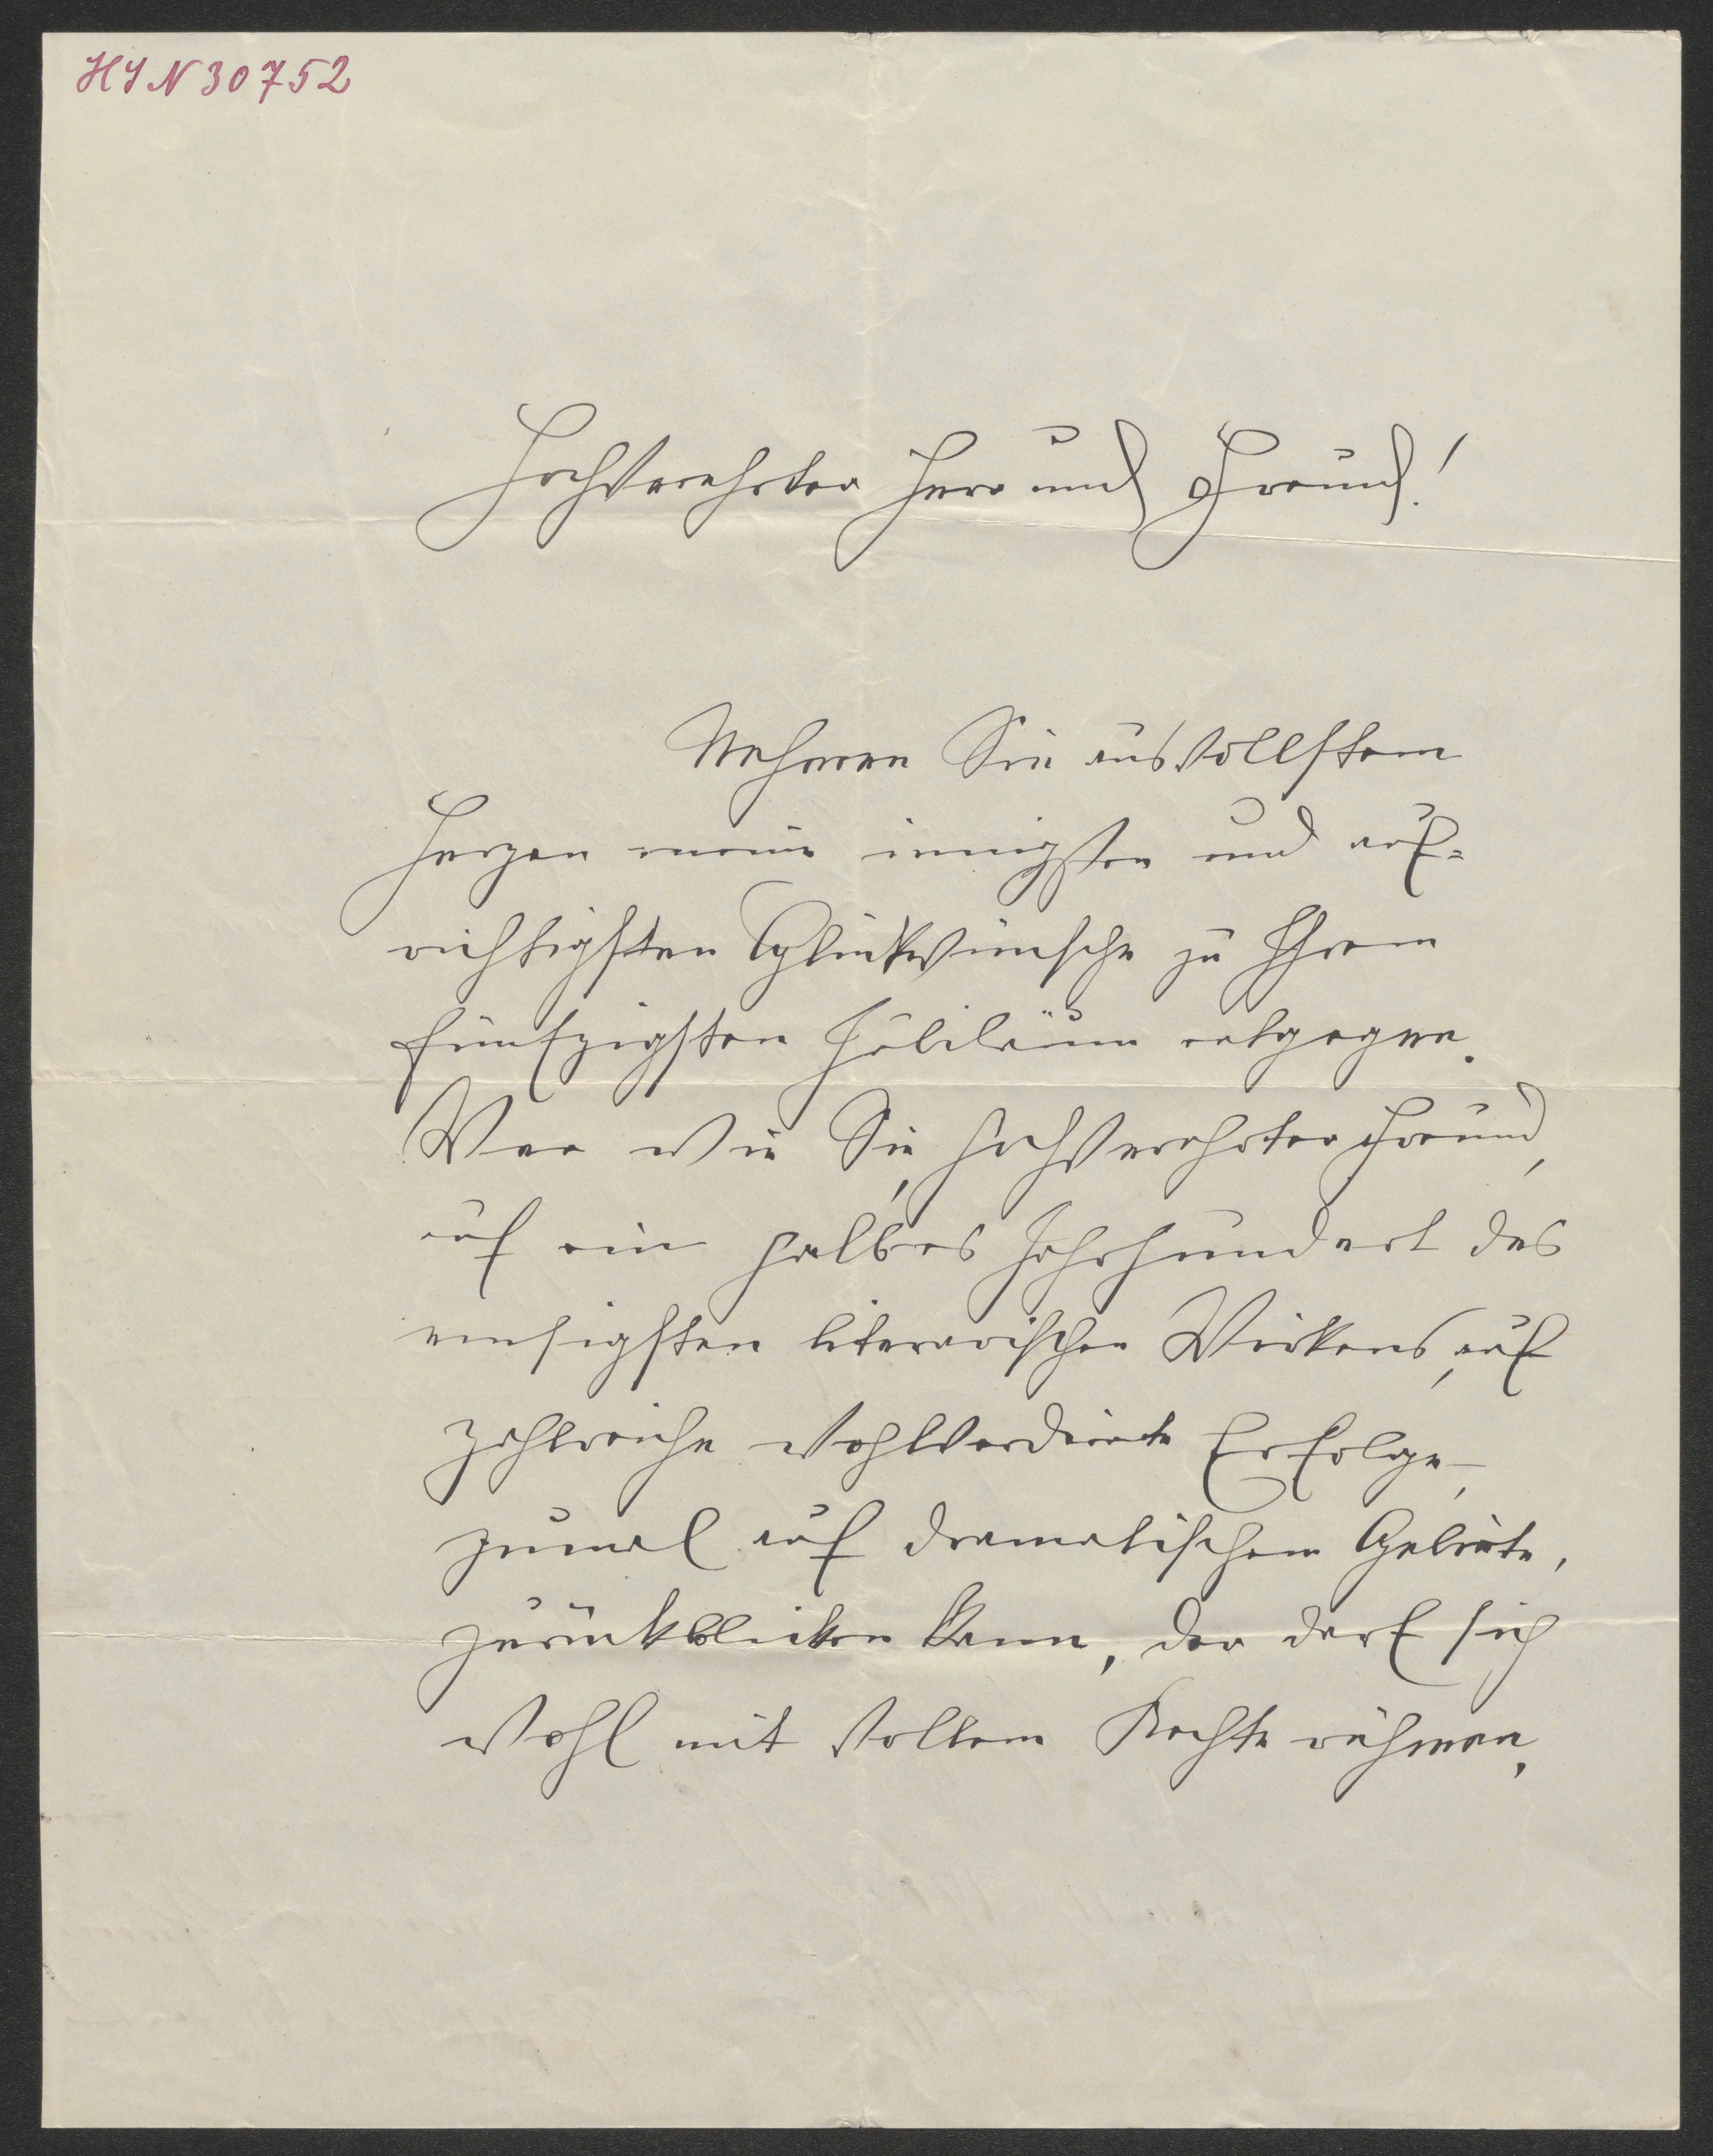 HIN 30752
Hochverehrter Herr und Freund!
Nehmen Sie aus vollstem
Herzen meine innigsten und auf=
richtigsten Glückwünsche zu Ihrem
fünfzigsten Jubiläum entgegen.
Wer wie Sie, hochverehrter Freund,
auf ein halbes Jahrhundert des
emsigsten literarischen Wirkens, auf
zahlreiche wohlverdiente Erfolge,
zumal auf dramatischem Gebiete,
zurückblicken kann, der darf sich
wohl mit vollem Rechte rühmen,